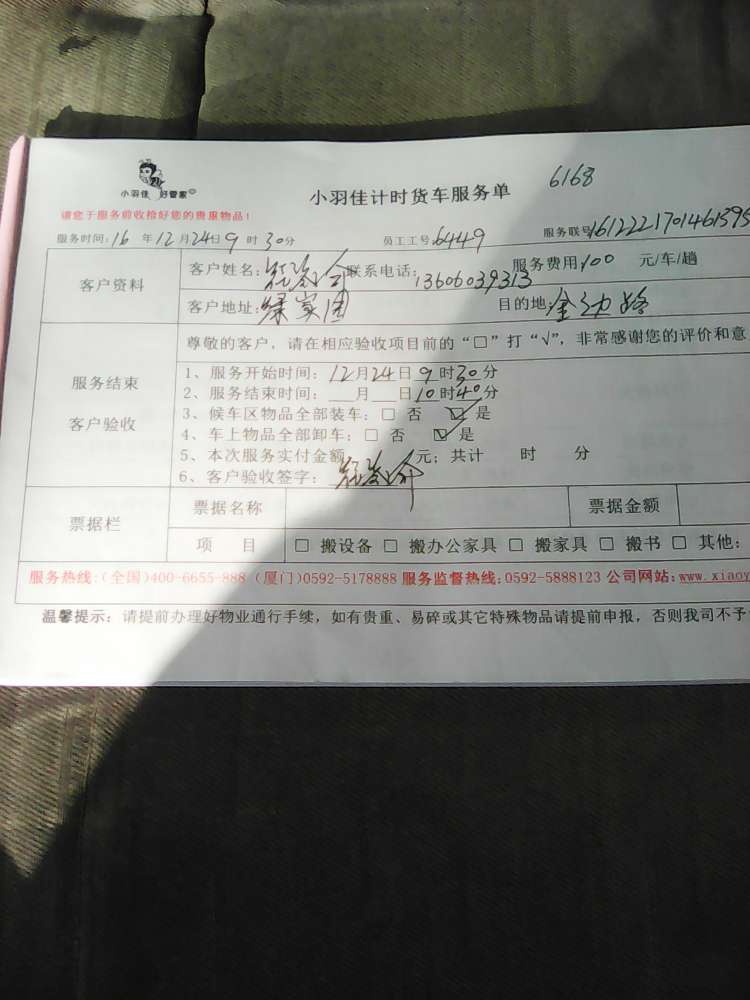 小羽佳 好管家
小羽佳计时货车服务单 6168
请您于服务前收捡好您的贵重物品!
服务时间:16 年12月24日9 时30分 员工工号6449 服务联号1612221701461395
客户资料
客户姓名: 联系电话:13606039313 服务费用100 元/车/趟
客户地址: 目的地:金边路
服务结束
客户验收
尊敬的客户,请在相应验收项目前的“□”打“√”,非常感谢您的评价和意
1、服务开始时间:12月24日9时30分
2、服务结束时间:___月___日10时40分
3、候车区物品全部装车:□ 否 ☑ 是
4、车上物品全部卸车:□ 否 ☑ 是
5、本次服务实付金额 元;共计 时 分
6、客户验收签字:
票据栏
票据名称 票据金额
项 目 □ 搬设备 □ 搬办公家具 □ 搬家具 □ 搬书 □ 其他:
服务热线:(全国)400-6655-888 (厦门)0592-5178888 服务监督热线:0592-5888123 公司网站:www.xiaoy
温馨提示:请提前办理好物业通行手续,如有贵重、易碎或其它特殊物品请提前申报,否则我司不予